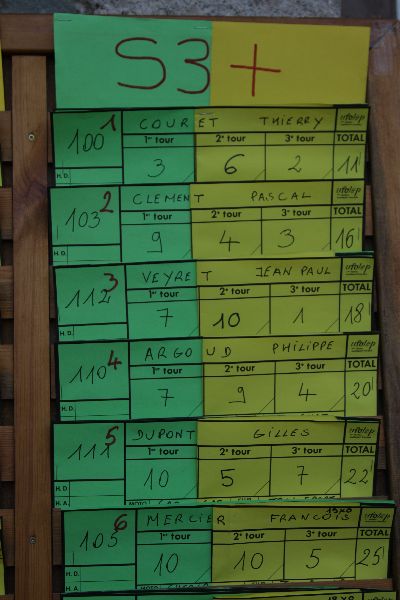 S3+
100 1 COURET THIERRY ufolep
1er tour 2e tour 3e tour TOTAL
H.D. 3 6 2 11
103 2 CLEMENT PASCAL ufolep
1er tour 2e tour 3e tour TOTAL
H.D. 9 4 3 16
112 3 VEYRET JEAN PAUL ufolep
1er tour 2e tour 3e tour TOTAL
H.D. 7 10 1 18
110 4 ARGOUD PHILIPPE ufolep
1er tour 2e tour 3e tour TOTAL
H.D. 7 9 4 20
111 5 DUPONT GILLES ufolep
1er tour 2e tour 3e tour TOTAL
H.D. 10 5 7 22
H.A.
105 6 MERCIER FRANCOIS ufolep
1er tour 2e tour 3e tour TOTAL
H.D. 10 10 5 25
H.A.